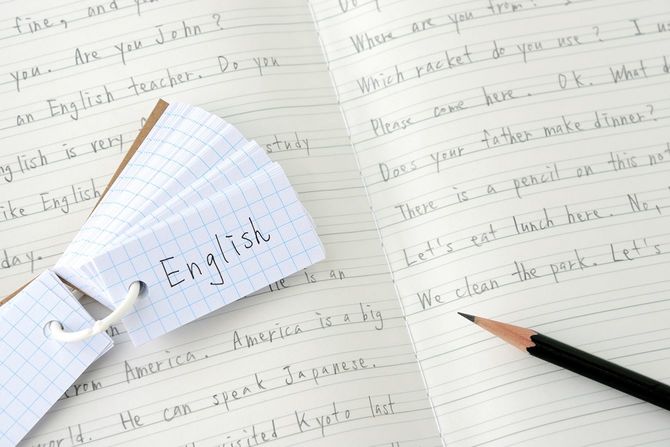 fine, and you
you. Are you John?
an English teacher. Do you
English is very
study
like English
day.
is an
from America. America is a big
world. He can speak Japanese.
visited Kyoto last
English
Do
Where are you from?
Which racket do you use? I
Please come here. Ok. What
Does your father make dinner?
There is a pencil on this
Let's eat lunch here. No,
We clean the park. Let's